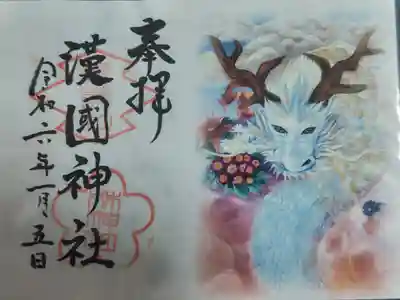 奉拝
漢國神社
令和六年一月五日